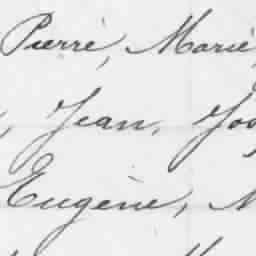 Pierre, Marie,
, Jean, Jos
Eugène,